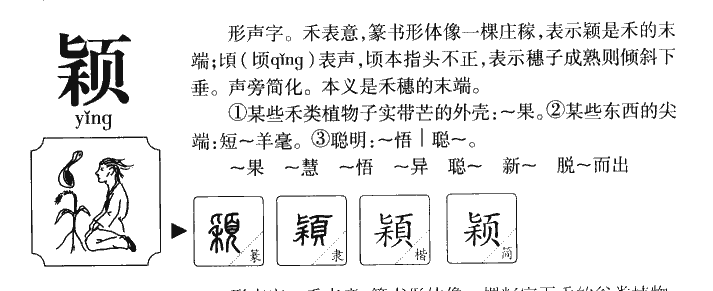 颖
yǐng
形声字。禾表意,篆书形体像一棵庄稼,表示颖是禾的末
端;頃(顷qǐng)表声,顷本指头不正,表示穗子成熟则倾斜下
垂。声旁简化。本义是禾穗的末端。
①某些禾类植物子实带芒的外壳:～果。②某些东西的尖
端:短～羊毫。③聪明:～悟｜聪～。
～果 ～慧 ～悟 ～异 聪～ 新～ 脱～而出
穎 篆 穎 隶 穎 楷 颖 简